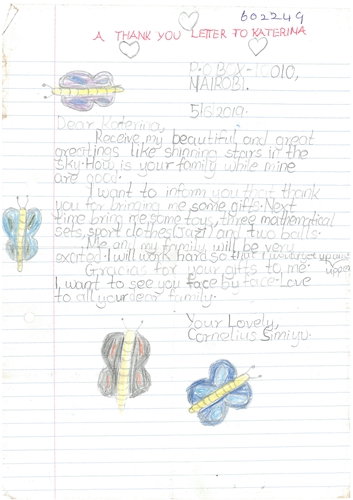 602249
A THANK YOU LETTER TO KATERINA
P.O BOX-10010,
NAIROBI.
5/6/2019.
Dear Katerina,
Receive my beautiful and great
greetings like shinning stars in the
sky. How is your family while mine
are good.
I want to inform you that thank
you for bringing me some gifts. Next
time bring me some toys, three mathematical
sets, sport clothes (Jazi) and two balls.
Me and my family will be very
excited. I will work hard so that I
Gracias for your gifts to me.
I want to see you face by face. Love
to all your dear family.
Your Lovely,
Cornelius Simiyu.